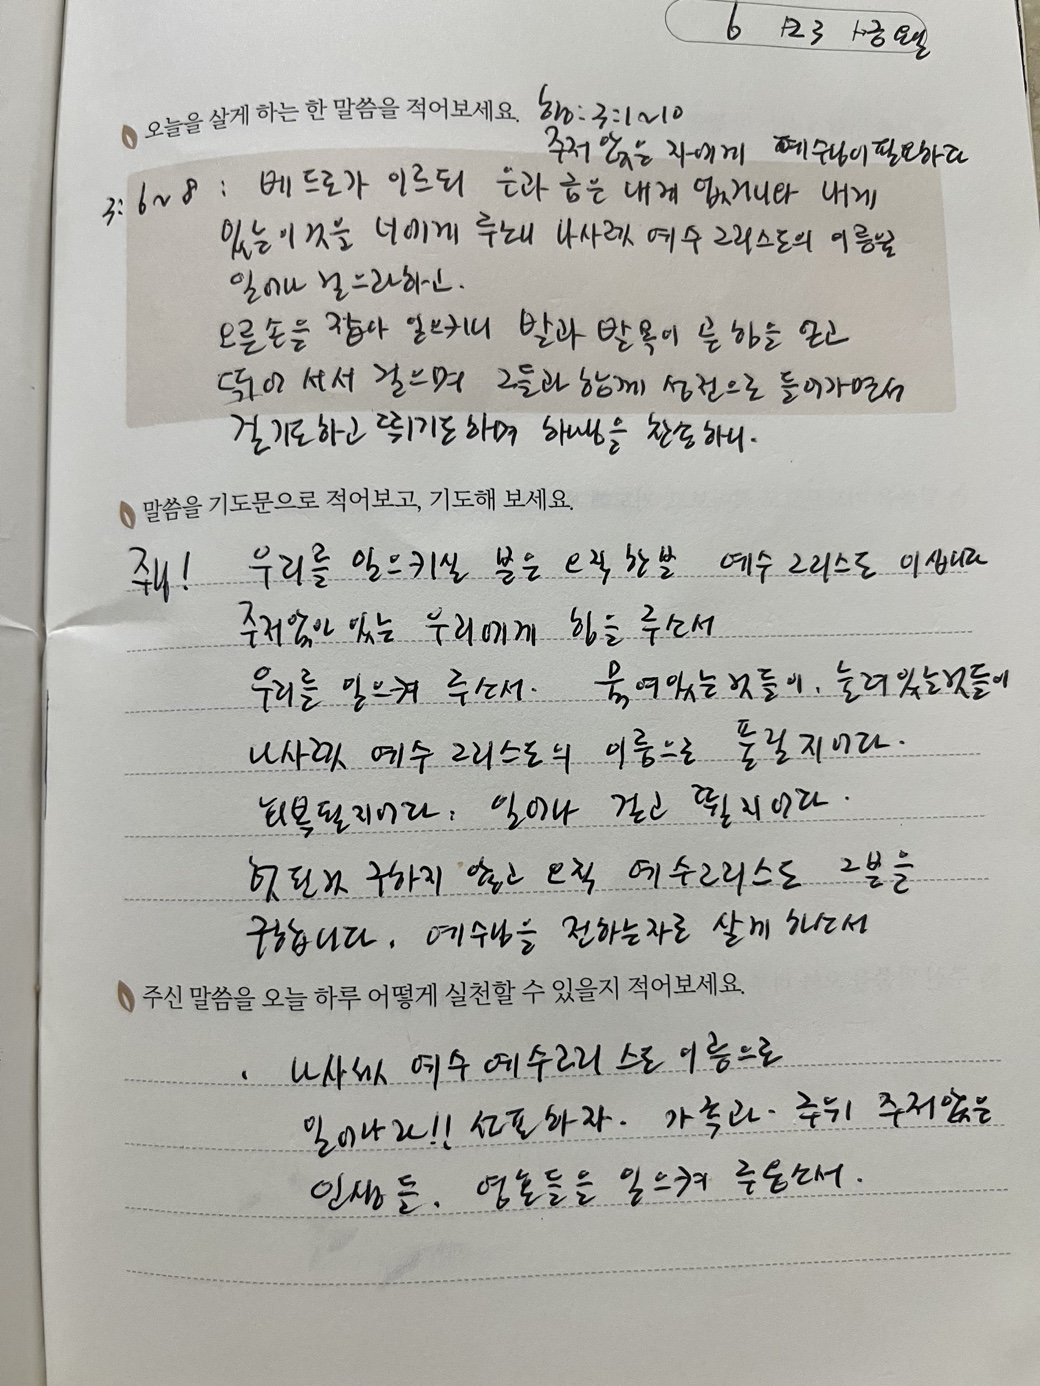 6 23 금요일
오늘을 살게 하는 한 말씀을 적어보세요. 행: 3:1~10
주저앉은 자에게 예수님이 필요하다
3: 6~8 : 베드로가 이르되 은과 금은 내게 없거니와 내게
있는 이것을 너에게 주노니 나사렛 예수 그리스도의 이름으로
일어나 걸으라하고.
오른손을 잡아 일으키니 발과 발목이 곧 힘을 얻고
뛰어 서서 걸으며 그들과 함께 성전으로 들어가면서
걸기도하고 뛰기도하며 하나님을 찬송하니.
말씀을 기도문으로 적어보고, 기도해 보세요.
주여! 우리를 일으키실 분은 오직 한분 예수 그리스도 이십니다
주저앉아 있는 우리에게 힘을 주소서
우리를 일으켜 주소서. 묶여있는것들이, 눌려있는것들이
나사렛 예수 그리스도의 이름으로 풀릴지어다.
회복될지어다. 일어나 걷고 뛸지어다.
헛된것 구하지 않고 오직 예수그리스도 그분을
구합니다. 예수님을 전하는자로 살게 하소서
주신 말씀을 오늘 하루 어떻게 실천할 수 있을지 적어보세요.
. 나사렛 예수 예수그리스도 이름으로
일어나라!! 선포하자. 가족과. 주위 주저앉은
인생들. 영혼들을 일으켜 주옵소서.